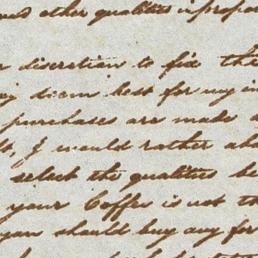 and other qualities in propor
r discretion to fix the
y deem best for my in
purchases are made a
I would rather
select the qualities be
your Coffee is not th
you should buy any for